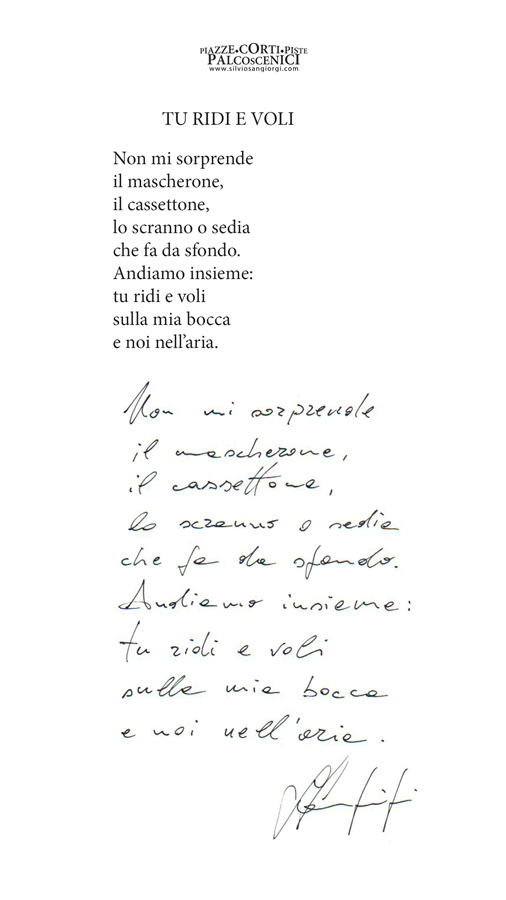 PIAZZE•CORTI•PISTE
PALCOSCENICI
www.silviosangiorgi.com
TU RIDI E VOLI
Non mi sorprende
il mascherone,
il cassettone,
lo scranno o sedia
che fa da sfondo.
Andiamo insieme:
tu ridi e voli
sulla mia bocca
e noi nell'aria.
Non mi sorprende
il mascherone,
il cassettone,
lo scranno o sedia
che fa da sfondo.
Andiamo insieme:
tu ridi e voli
sulla mia bocca
e noi nell'aria.